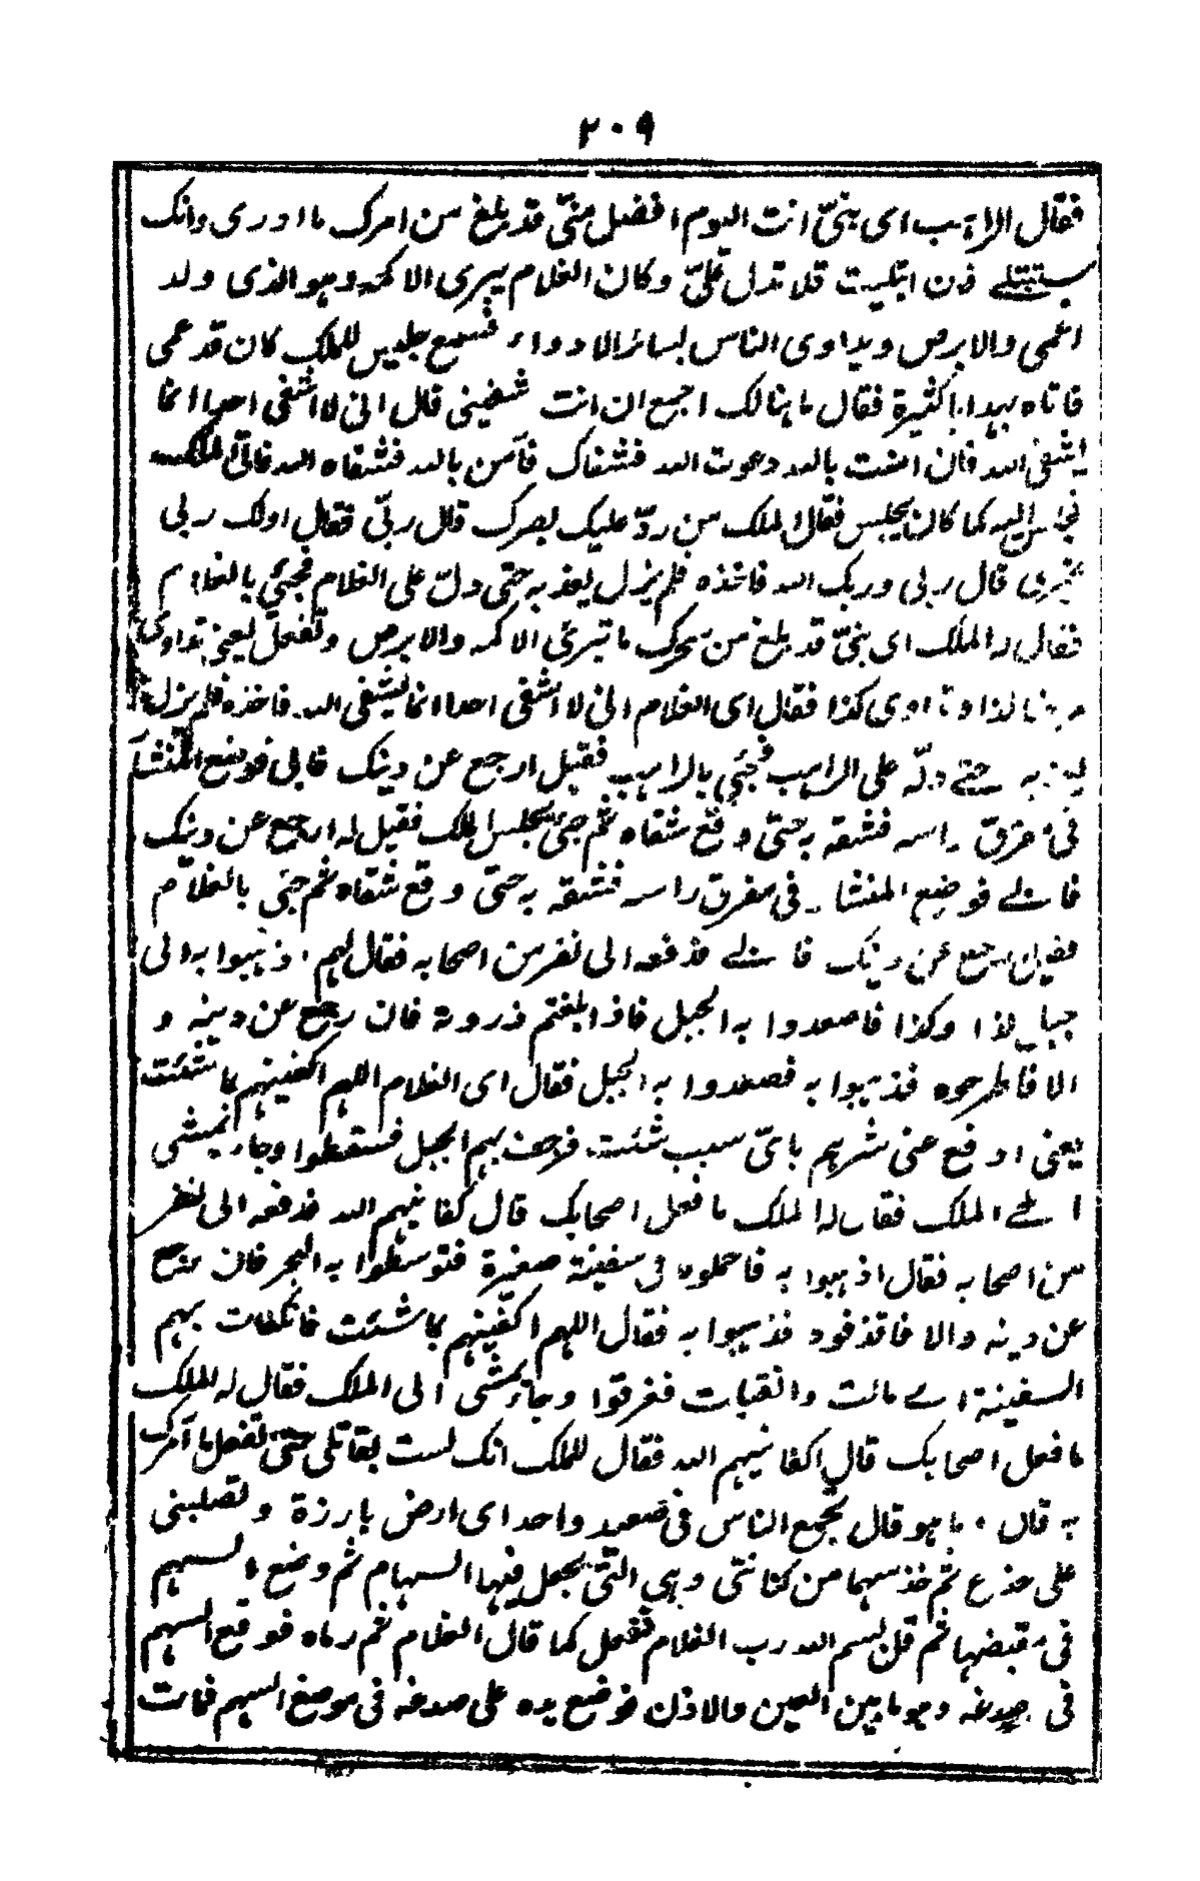 ٢٠٩
فقال الراهب اى بنىّ انت اليوم افضل منّى قد بلغ من امرك ما ادرى وانك
ستبتلے فان ابتليت فلا تدل علىّ وكان الغلام يبرى الاكمه وهو الذى ولد
اعمى والابرص ويداوى الناس بسائر الادواء فسمع جليس للملك كان قد عمى
فاتاه بهدايا كثيرة فقال ما هنالك اجمع ان انت شفيتنى قال انى لا اشفى احدا انما
يشفى الله فان امنت بالله دعوت الله فشفاك فآمن بالله فشفاه الله فاتى الملك
فجلس اليه كما كان يجلس فقال الملك من ردّ عليك بصرك قال ربّى فقال اولك رب
غيرى قال ربى وربك الله فاخذه فلم يزل يعذبه حتى دلّ على الغلام فجئ بالغلام
فقال له الملك اى بنىّ قد بلغ من سحرك ما تبرئ الاكمه والابرص وتفعل يعنى تداوى
مرضا كذا وتداوى كذا فقال اى الغلام انى لا اشفى احدا انما يشفى الله فاخذه فلم يزل
يعذبه حتے دلّه على الراهب فجئ بالراهب فقيل ارجع عن دينك فابى فوضع المنشار
فى مفرق راسه فشقه به حتّى وقع شقاه ثم جئ بجليس الملك فقيل له ارجع عن دينك
فابے فوضع المنشار فى مفرق راسه فشقه به حتّى وقع شقاه ثم جئ بالغلام
فقيل ارجع عن دينك فابے فدفعه الى نفر من اصحابه فقال لهم اذهبوا به الى
جبل كذا وكذا فاصعدوا به الجبل فاذا بلغتم ذروته فان رجع عن دينه و
الا فاطرحوه فذهبوا به فصعدوا به الجبل فقال اى الغلام اللهم اكفنيهم بما شئت
يعنى ادفع عنى شرهم باىّ سبب شئت فرجف بهم الجبل فسقطوا وجاء يمشى
الے الملك فقال له الملك ما فعل اصحابك قال كفانيهم الله فدفعه الى نفر
من اصحابه فقال اذهبوا به فاحملوه فى سفينة صغيرة فتوسطوا به البحر فان رجع
عن دينه والا فاقذفوه فذهبوا به فقال اللهم اكفنيهم بما شئت فانكفات بهم
السفينة اے مالت وانقلبات فغرقوا وجاء يمشى الى الملك فقال له الملك
ما فعل اصحابك قال كفانيهم الله فقال للملك انك لست بقاتلى حتى تفعل ما آمرك
به قال ما هو قال تجمع الناس فى صعيد واحد اى ارض بارزة وتصلبنى
على جذع ثم خذ سهما من كنانتى وهى التّى يجعل فيها السهام ثم وضع السهم
فى مقبضها ثم قل بسم الله رب الغلام ففعل كما قال الغلام ثم رماه فوقع السهم
فى صدغه وهو ما بين العين والاذن فوضع يده على صدغه فى موضع السهم فمات